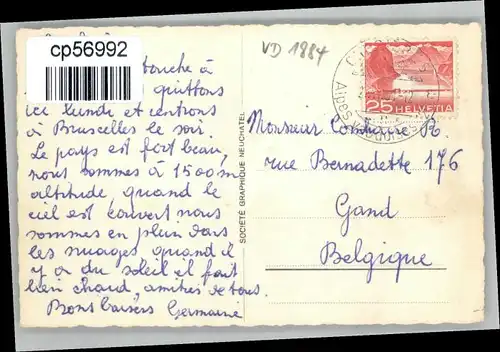 cp56992
VD 1884
touche à
quittons
ici lundi et rentrons
à Bruxelles le soir.
Le pays est fort beau,
nous sommes à 1500 m
altitude quand le
ciel est couvert nous
sommes en plein dans
les nuages quand il
y a du soleil il fait
bien chaud, amitiés de tous.
Bons baisers Germaine
SOCIÉTÉ GRAPHIQUE NEUCHATEL
25 HELVETIA
Alpes
Monsieur R
rue Bernadette 176
Gand
Belgique